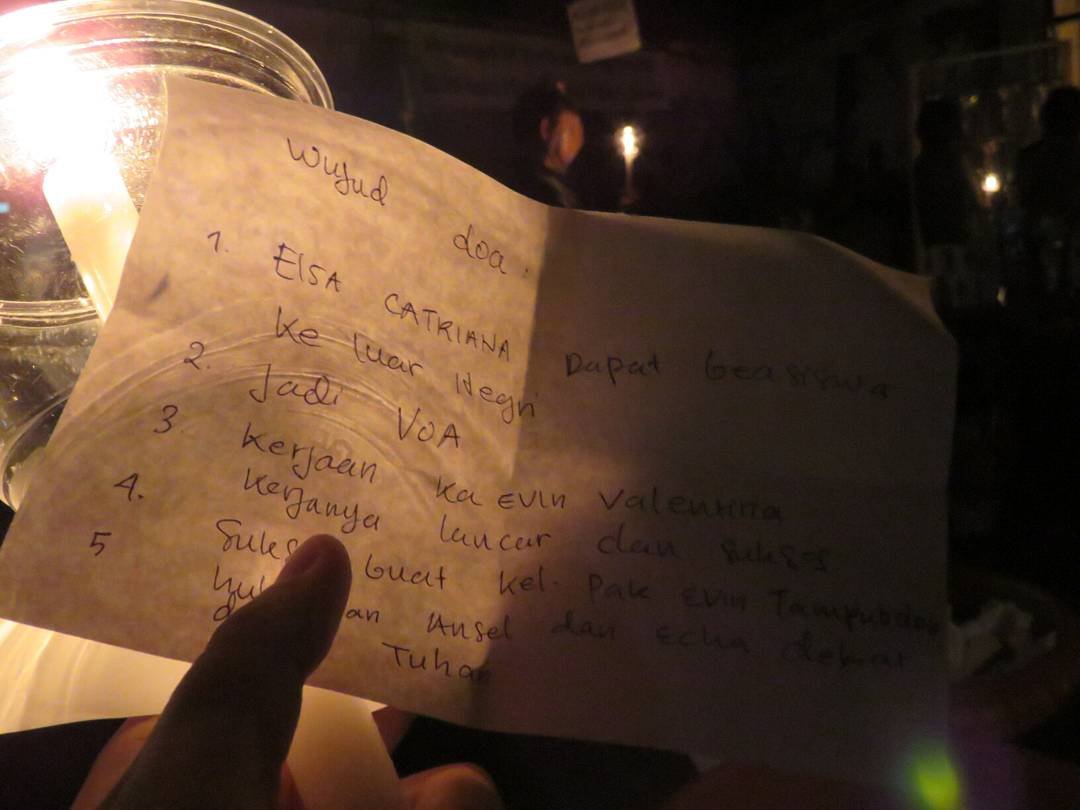 Wujud doa.
1. ElSA CATRIANA Dapat beasiswa
ke luar Negri
2. Jadi VOA
3. Kerjaan ka EVIN Valentina
4. Kerjanya lancar dan sukses
5 Suks buat kel. Pak EVIN Tampubolon
an Ansel dan Echa dekat
Tuhan